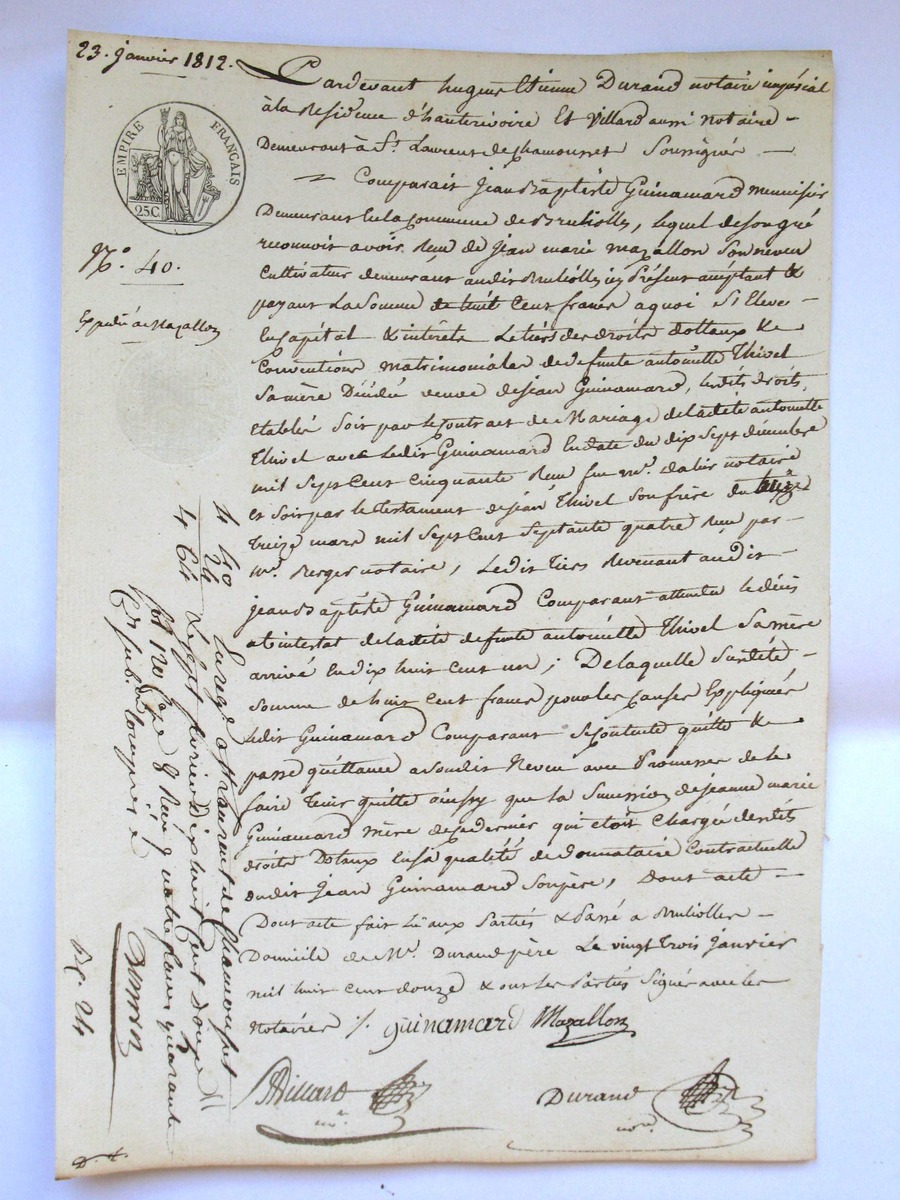 23. janvier 1812.
EMPIRE FRANÇAIS
25C
N.º 40.
Expedié a Mazallon
Pardevant hugues Etienne Durand notaire impérial
à la Residence d'hauterivoire Et Villard aussi Notaire -
Demeurant à St. Laurent de Chamousset Soussignés -
Comparait Jean Baptiste Guinamard Menuisier
Demeurant En la Commune de Brulliolles, lequel de son gré
reconnoit avoir Reçu de Jean marie Mazallon Son neveu
Cultivateur demeurant audit Brulliolles ici Présent acceptant &
payant La Somme de huit Cent francs a quoi S'Eleve -
le Capital & intérêts Le tiers des droits dottaux &
Conventions Matrimoniales de defunte antoinette Thivel
Sa mère Décédée veuve de jean Guinamard, lesdits droits,
Etablis Soit par le Contract de Mariage de ladite antoinette
Thivel avec ledit Guinamard En date du dix Sept décembre
mil Sept Cent Cinquante Reçu notaire
et Soit par le testament de jean Thivel Son frère du
treize mars mil Sept Cent Septante quatre Reçu par -
Me. Berger notaire, Ledit tiers Revenant audit -
jean Baptiste Guinamard Comparant attendu le décès
ab intestat de ladite defunte antoinette Thivel Sa mère
arrivé En dix huit Cent un ; De laquelle Susdite -
Somme de huit Cent francs pour les Causes Expliquées
ledit Guinamard Comparant Se Contente quitte &
passe quittance a Son dit Neveu avec Promesse de le
faire tenir quitte ainsy que la Succession de jeanne marie
Guinamard Mère de ce dernier qui etoit Chargée desdits
droits Dotaux En Sa qualité de donnataire Contractuelle
dudit Jean Guinamard Son père, Dont acte -
Dont acte fait Lû aux Parties & Passé a Brulliolles -
Domicile de Me. Durand père Le vingt Trois Janvier
mil huit Cent douze & ont Les Parties Signé avec les
Notaires ./. guinamard Mazallon
Villard
nre.
Durand
nore.
4 40
24
4 64
Enreg.é a St Laurent de Chamousset
Le Sept fevrier dix huit Cent douze
fol. 120 Case 8 Reçu quatre francs quarante
C.es Sub.on Comprise
24